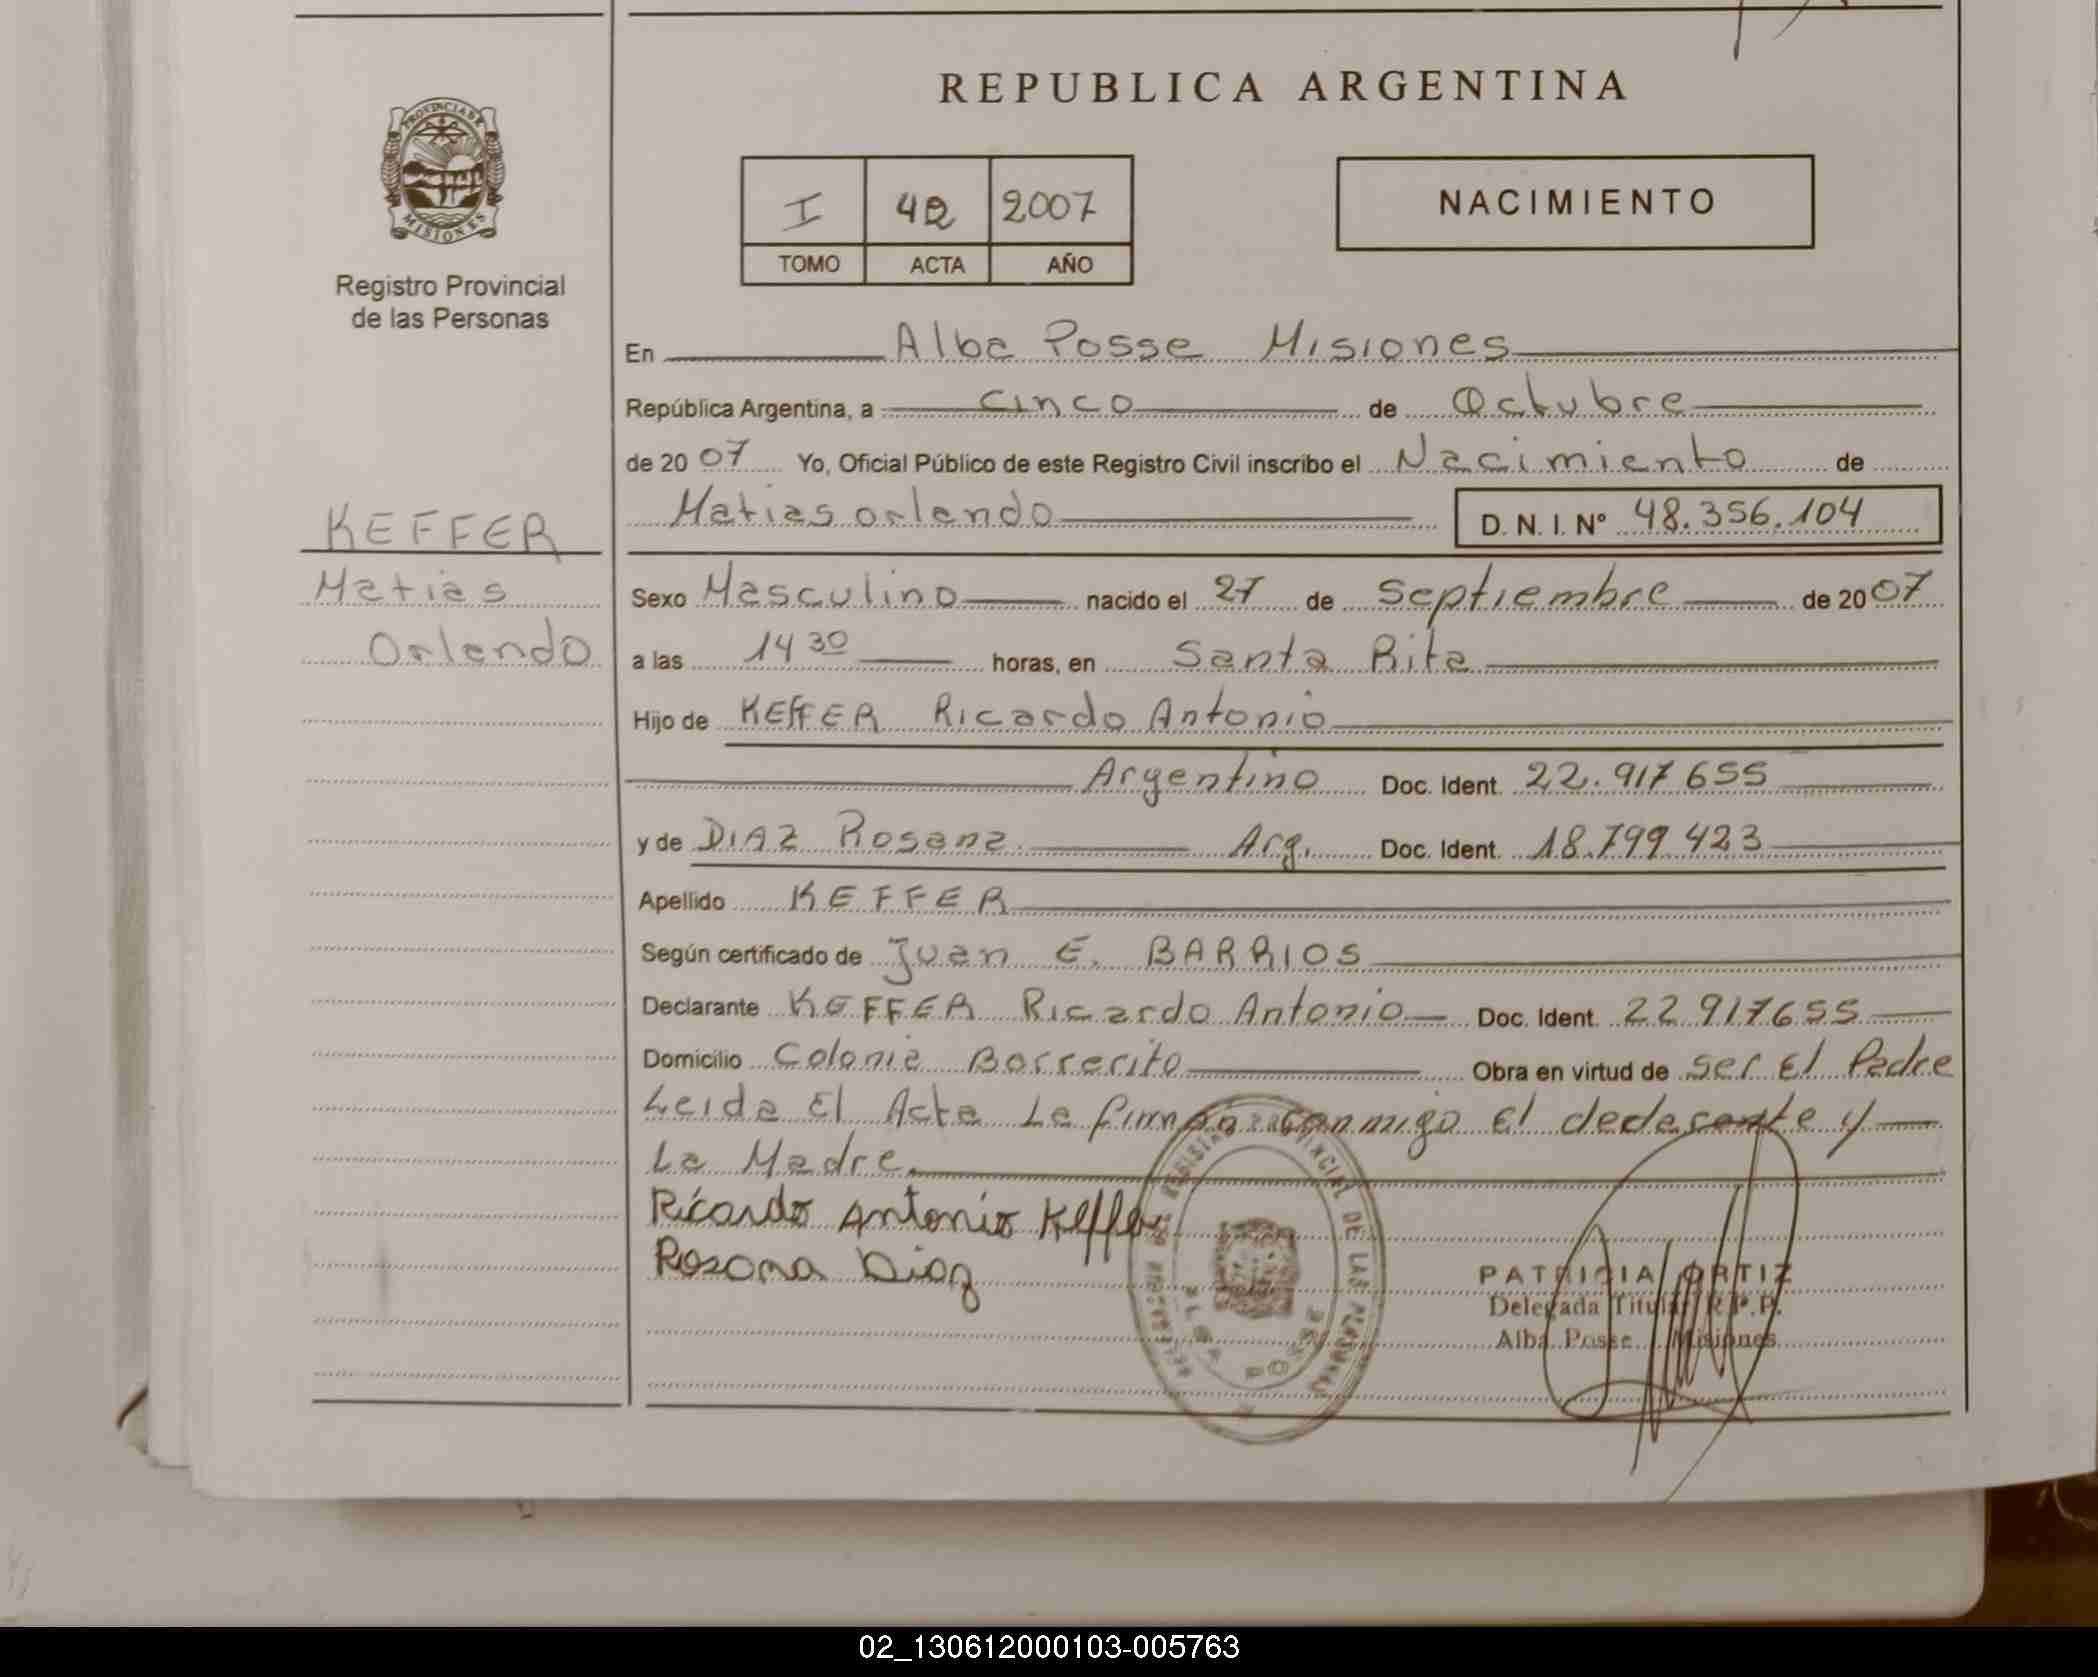 REPUBLICA ARGENTINA
PROVINCIA DE
MISIONES
Registro Provincial
de las Personas
I 42 2007
TOMO ACTA AÑO
NACIMIENTO
En Alba Posse Misiones
República Argentina, a cinco de Octubre
de 2007 Yo, Oficial Público de este Registro Civil inscribo el Nacimiento de
Matias Orlando D. N. I. Nº 48.356.104
KEFFER
Matias
Orlando
Sexo Masculino nacido el 27 de Septiembre de 2007
a las 14 30 horas, en Santa Rita
Hijo de KEFFER Ricardo Antonio
Argentino Doc. Ident. 22.917 655
y de DIAZ Rosana Arg. Doc. Ident. 18.799 423
Apellido KEFFER
Según certificado de Juan E. BARRIOS
Declarante KEFFER Ricardo Antonio Doc. Ident. 22 917655
Domicilio Colonia Borrerito Obra en virtud de ser El Padre
Leida El Acta La firman conmigo El declarante y
La Madre.
Ricardo Antonio Keffer
Rosana Diaz
REGISTRO PROVINCIAL DE LAS PERSONAS
ALBA POSSE
PATRICIA ORTIZ
Delegada Titular R.P.P.
Alba Posse Misiones
02_130612000103-005763